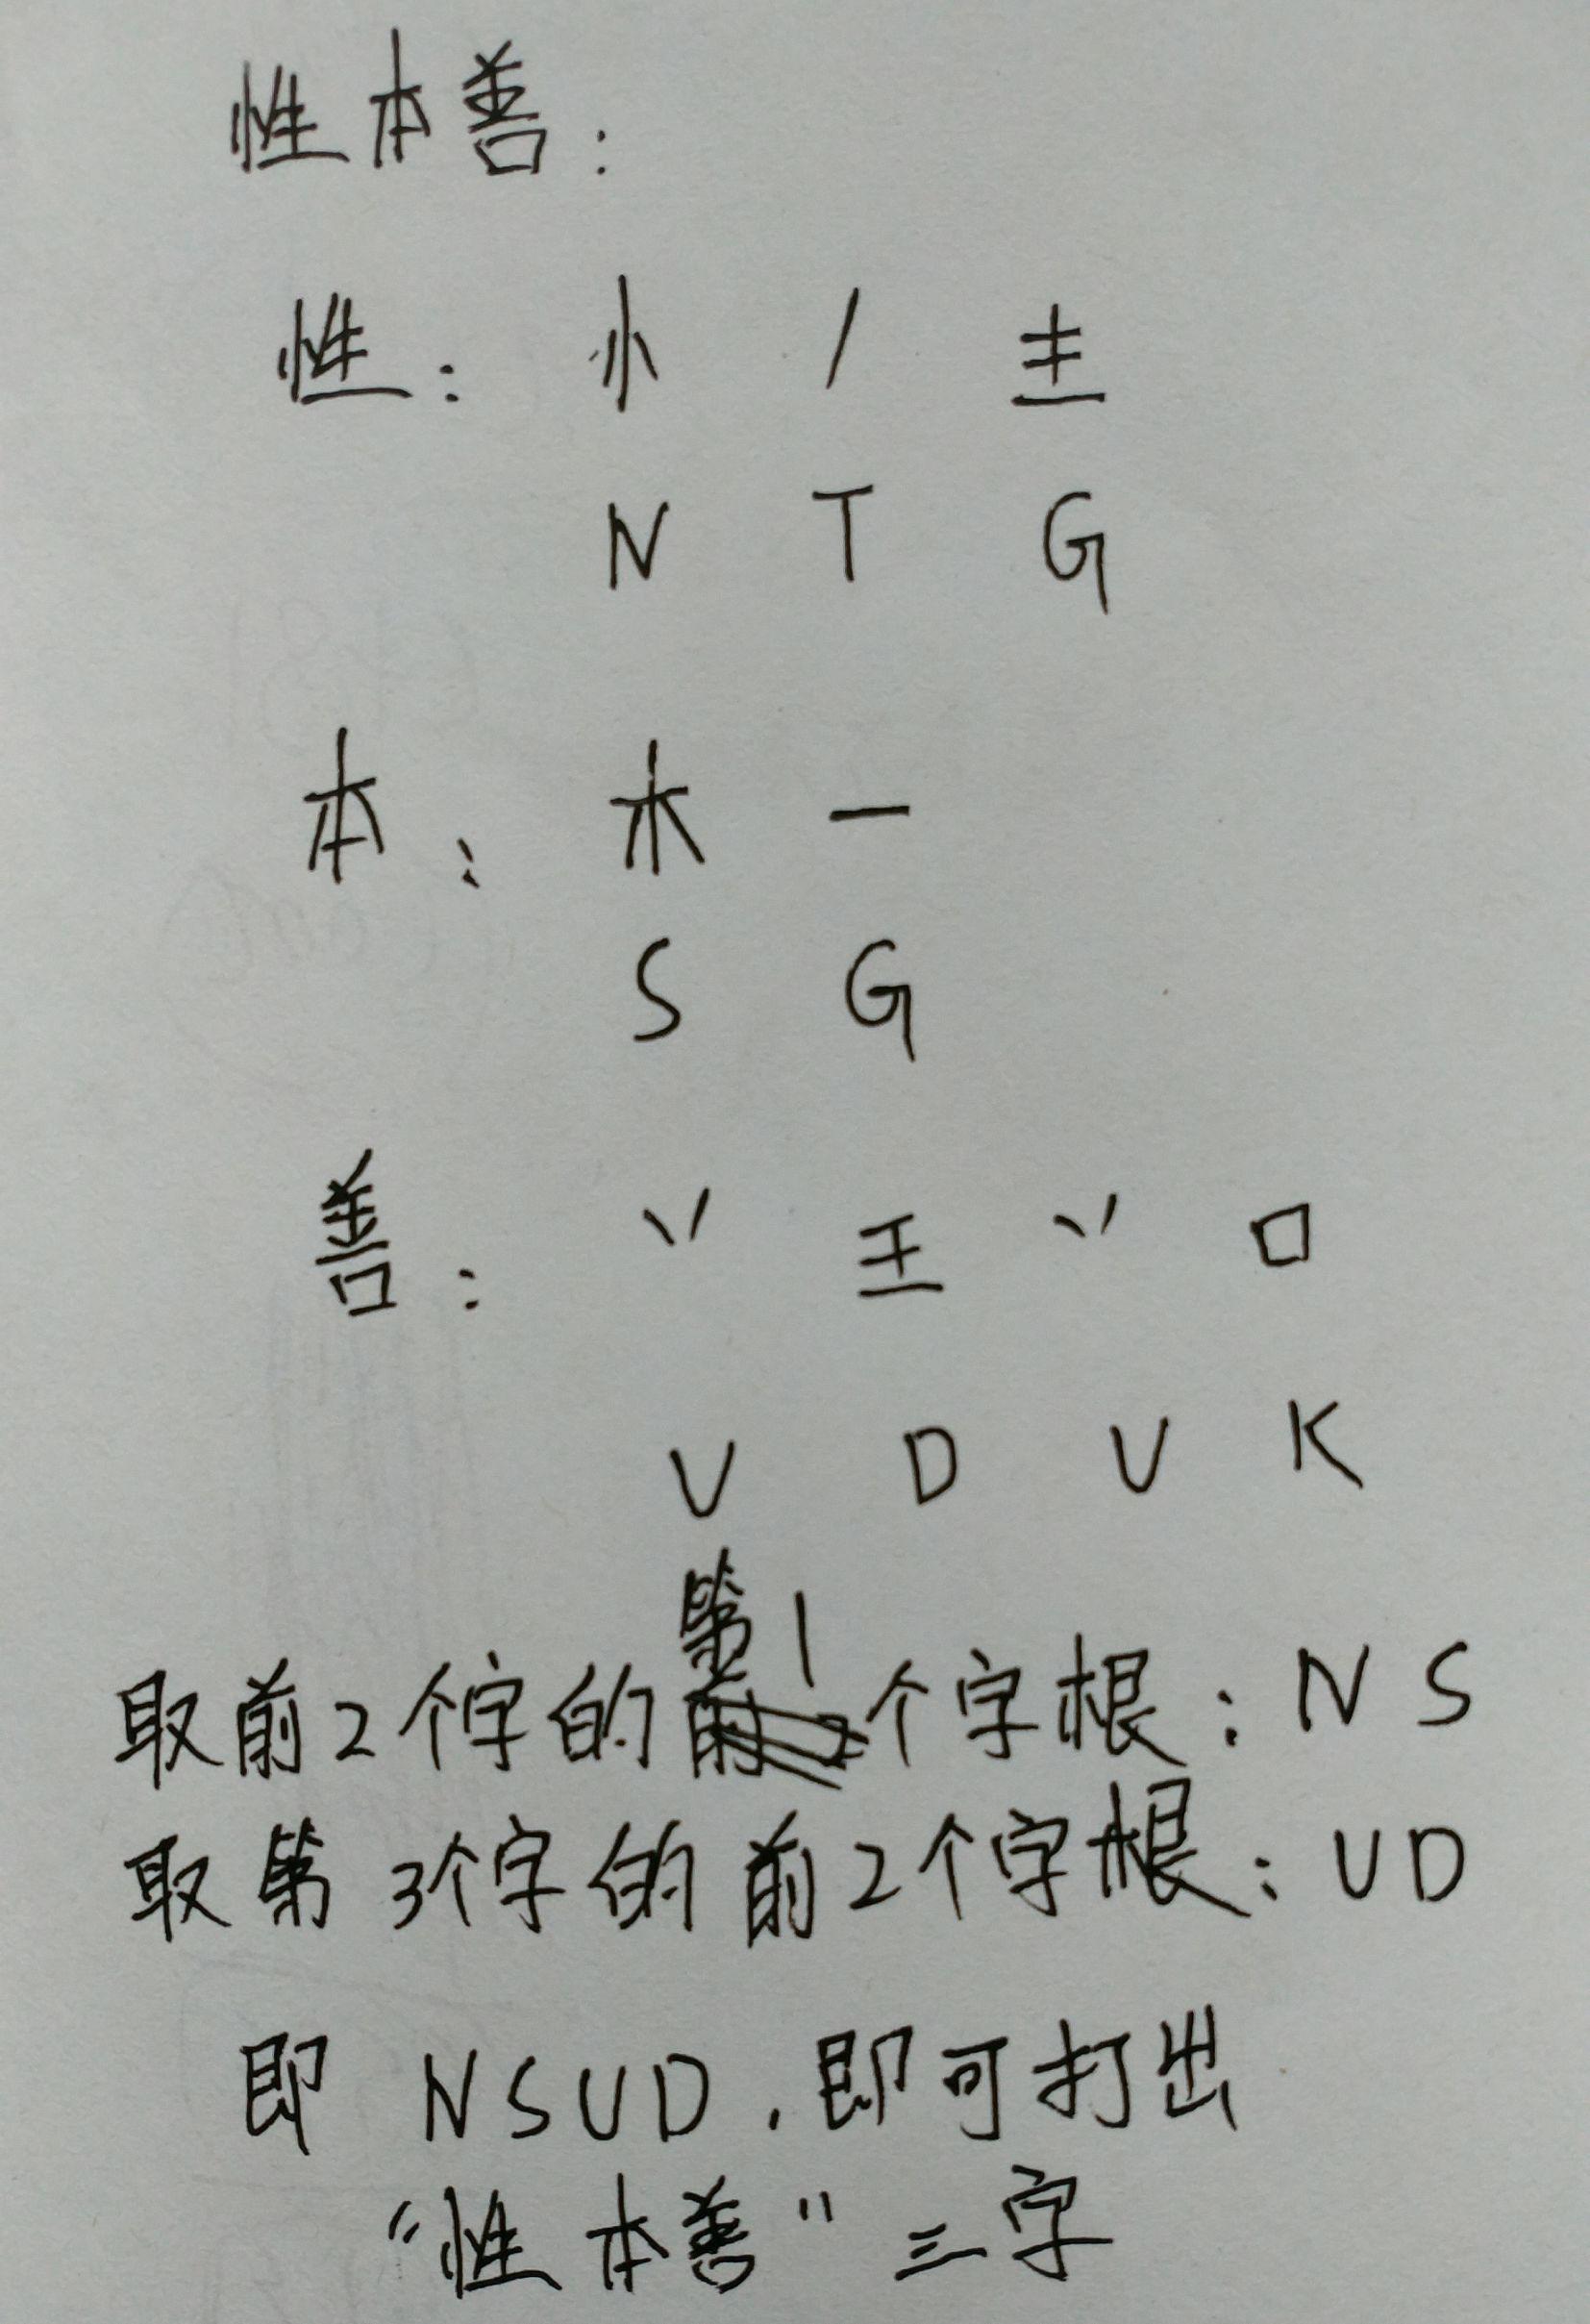 性本善：
性：忄 丿 龶
N T G
本：木 一
S G
善：丷 王 丷 口
U D U K
取前2个字的第1个字根：NS
取第3个字的前2个字根：UD
即 NSUD，即可打出
“性本善”三字